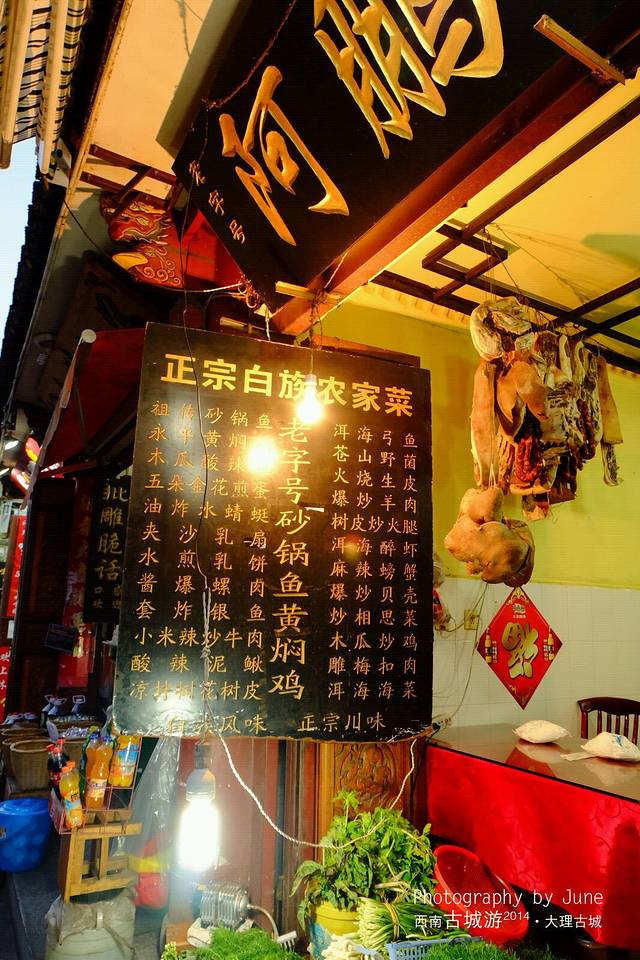 阿鹏
老字号
正宗白族农家菜
祖传砂锅鱼
永平黄焖
木瓜酸辣
五朵金花煎蛋
油炸水蜻蜓
夹沙乳扇
水煎乳饼
酱爆螺肉
套炸银鱼
小米辣炒牛肉
酸辣泥鳅
凉拌树花树皮
老字号砂锅鱼黄焖鸡
洱海弓鱼
苍山野菌
火烧生皮
爆炒羊肉
树皮炒火腿
洱海醉虾
麻辣螃蟹
爆炒贝壳
炒相思菜
木瓜炒鸡
雕梅扣肉
洱海海菜
白族风味 正宗川味
福
Photography by June
西南古城游2014·大理古城